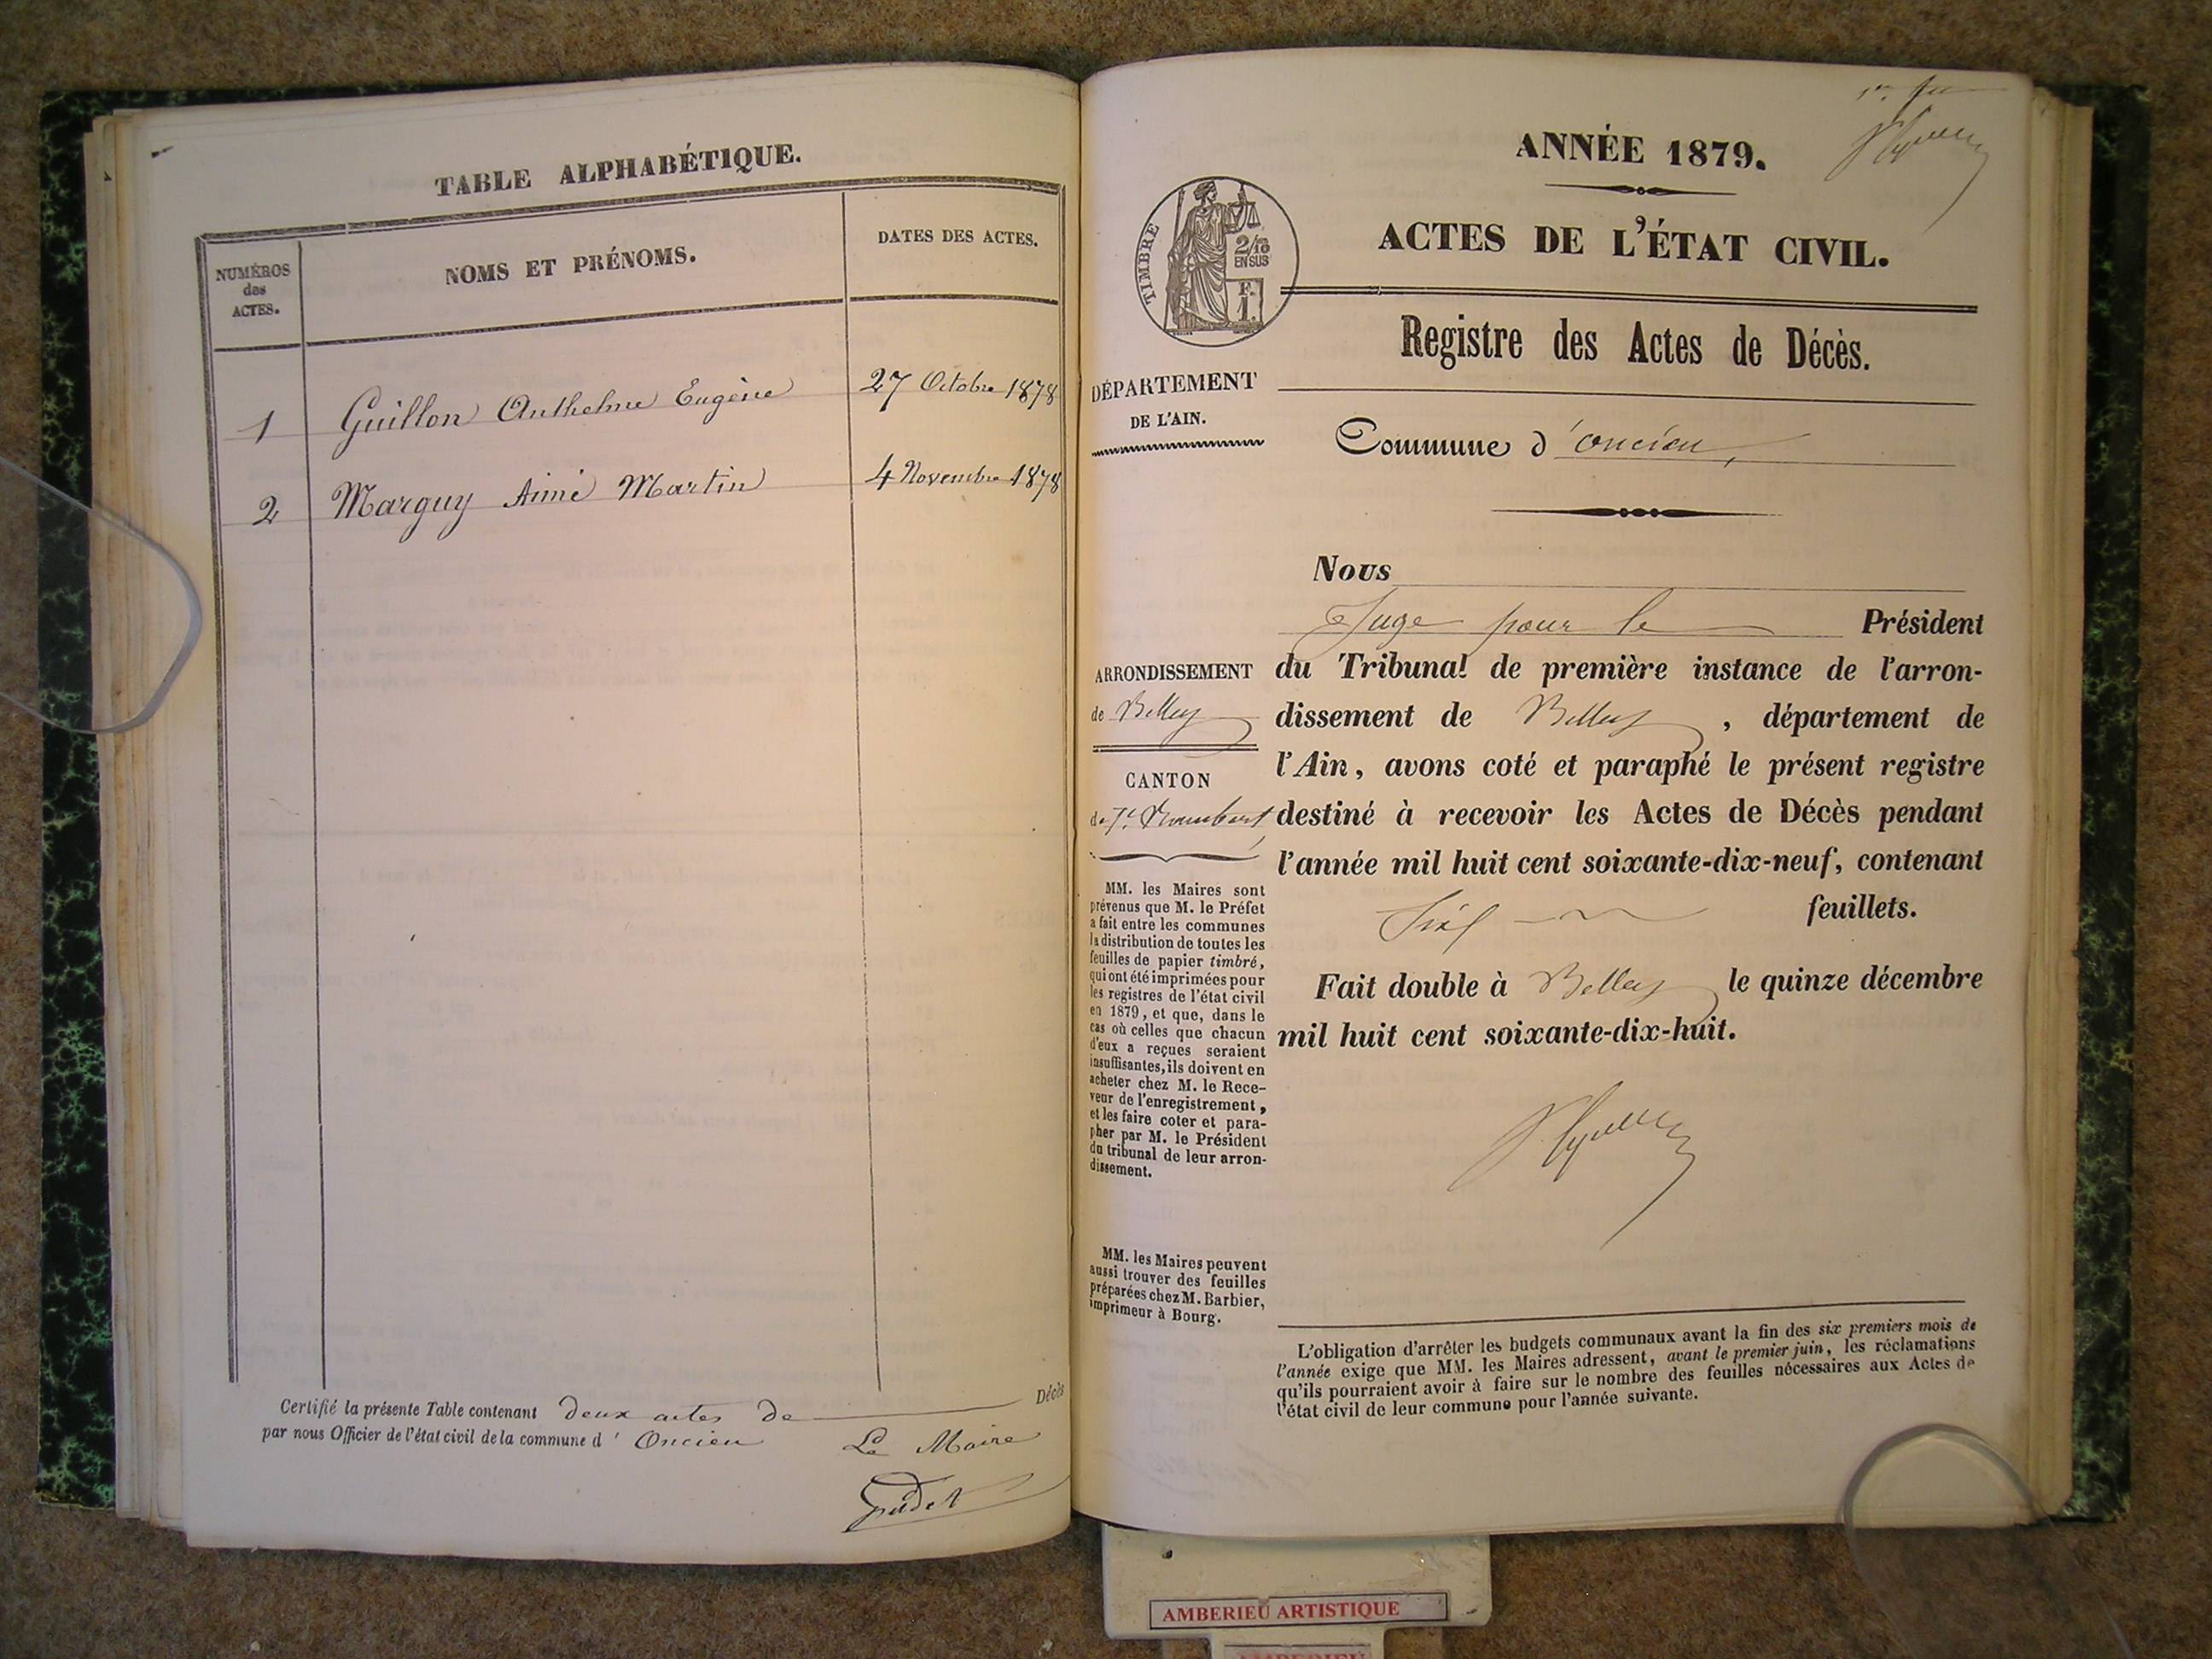 TABLE ALPHABÉTIQUE.
NUMÉROS
des
ACTES.
NOMS ET PRÉNOMS.
DATES DES ACTES.
1 Guillon Anthelme Eugène 27 Octobre 1878
2 Marguy Aimé Martin 4 Novembre 1878
Certifié la présente Table contenant deux actes de Décès
par nous Officier de l'état civil de la commune d' Oncieu
Le Maire
ANNÉE 1879.
ACTES DE L'ÉTAT CIVIL.
TIMBRE
2/10
EN SUS
F.
1.
Registre des Actes de Décès.
DÉPARTEMENT
DE L'AIN.
Commune d'oncieu,
Nous
Juge pour le Président
du Tribunal de première instance de l'arron-
dissement de Belley, département de
l'Ain, avons coté et paraphé le présent registre
destiné à recevoir les Actes de Décès pendant
l'année mil huit cent soixante-dix-neuf, contenant
Six feuillets.
Fait double à Belley le quinze décembre
mil huit cent soixante-dix-huit.
ARRONDISSEMENT
de Belley
CANTON
de St. Rambert
MM. les Maires sont
prévenus que M. le Préfet
a fait entre les communes
la distribution de toutes les
feuilles de papier timbré,
qui ont été imprimées pour
les registres de l'état civil
en 1879, et que, dans le
cas où celles que chacun
d'eux a reçues seraient
insuffisantes, ils doivent en
acheter chez M. le Rece-
veur de l'enregistrement,
et les faire coter et para-
pher par M. le Président
du tribunal de leur arron-
dissement.
MM. les Maires peuvent
aussi trouver des feuilles
préparées chez M. Barbier,
imprimeur à Bourg.
L'obligation d'arrêter les budgets communaux avant la fin des six premiers mois de
l'année exige que MM. les Maires adressent, avant le premier juin, les réclamations
qu'ils pourraient avoir à faire sur le nombre des feuilles nécessaires aux Actes de
l'état civil de leur commune pour l'année suivante.
AMBERIEU ARTISTIQUE
AMBERIEU